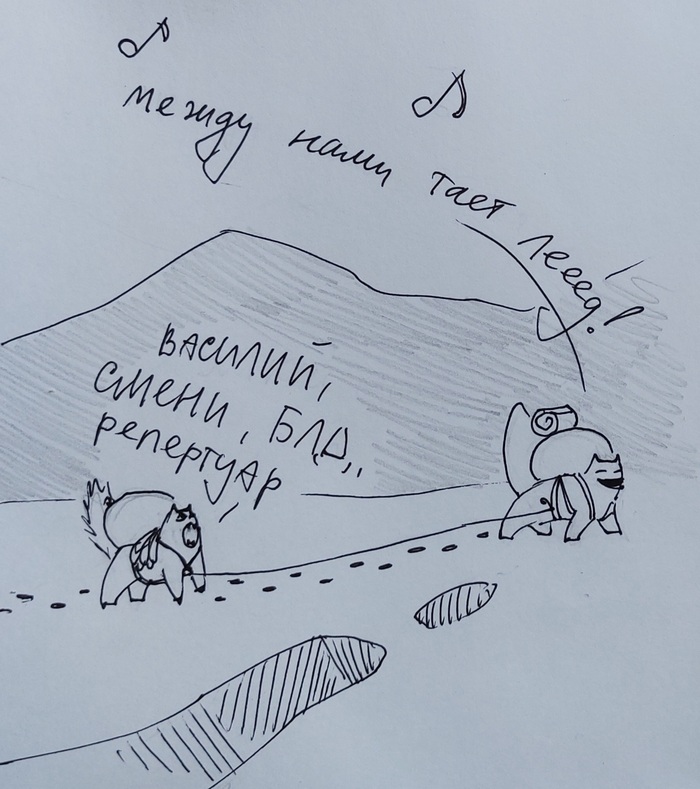 между нами тает лёёёд!
ВАСИЛИЙ,
СМЕНИ, БЛД,
репертуар